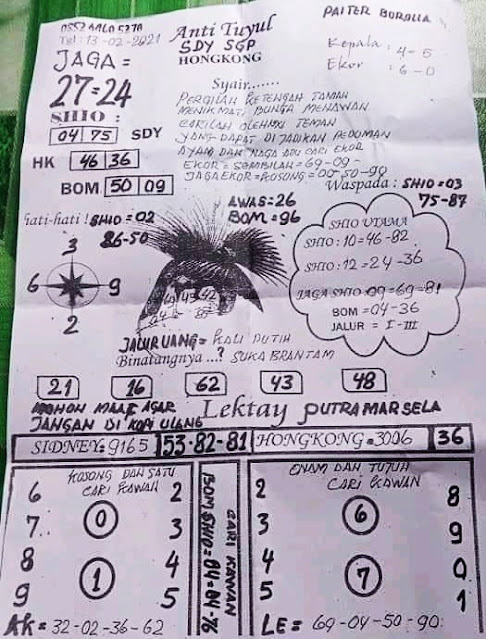 Tgl: 13-02-2021
Anti Tuyul
SDY SGP
HONGKONG
PAITER BOROLLA
Kepala: 4-5
Ekor : 6-0
JAGA =
27=24
SHIO :
04 75 SDY
HK 46 36
BOM 50 09
Syair.......
PERGILAH KETENGAH TAMAN
MENIKMATI BUNGA MENAWAN
CARILAH OLEHMU TEMAN
YANG DAPAT DIJADIKAN PEDOMAN
AYAM DAN NAGA ADU CARI EKOR
EKOR=SEMBILAH=69-09-
JAGA EKOR=KOSONG=00-50-90
Waspada : SHIO=03
75-87
hati-hati! SHIO=02
26-50
AWAS=26
BOM=96
3
6 9
2
SHIO UTAMA
SHIO : 10=46-82
SHIO : 12=24-36
JAGA SHIO 09=69=81
BOM =04-36
JALUR = I-III
JALUR UANG= KALI PUTIH
Binatangnya ...? SUKA BRANTAM
21 16 62 43 48
MOHON MAAF AGAR
JANGAN DI KOPI ULANG
Lektay PUTRA MARSELA
SIDNEY=9165 53-82-81 HONGKONG=3006 36
KOSONG DAN SATU
CARI KAWAN
6 2
7 0 3
8 4
9 1 5
AK=32-02-36-62
CARI KAWAN
BOM SHIO=04-04-76
ENAM DAN TUJUH
CARI KAWAN
2 8
3 6 9
4 0
5 7 1
LE= 69-04-50-90